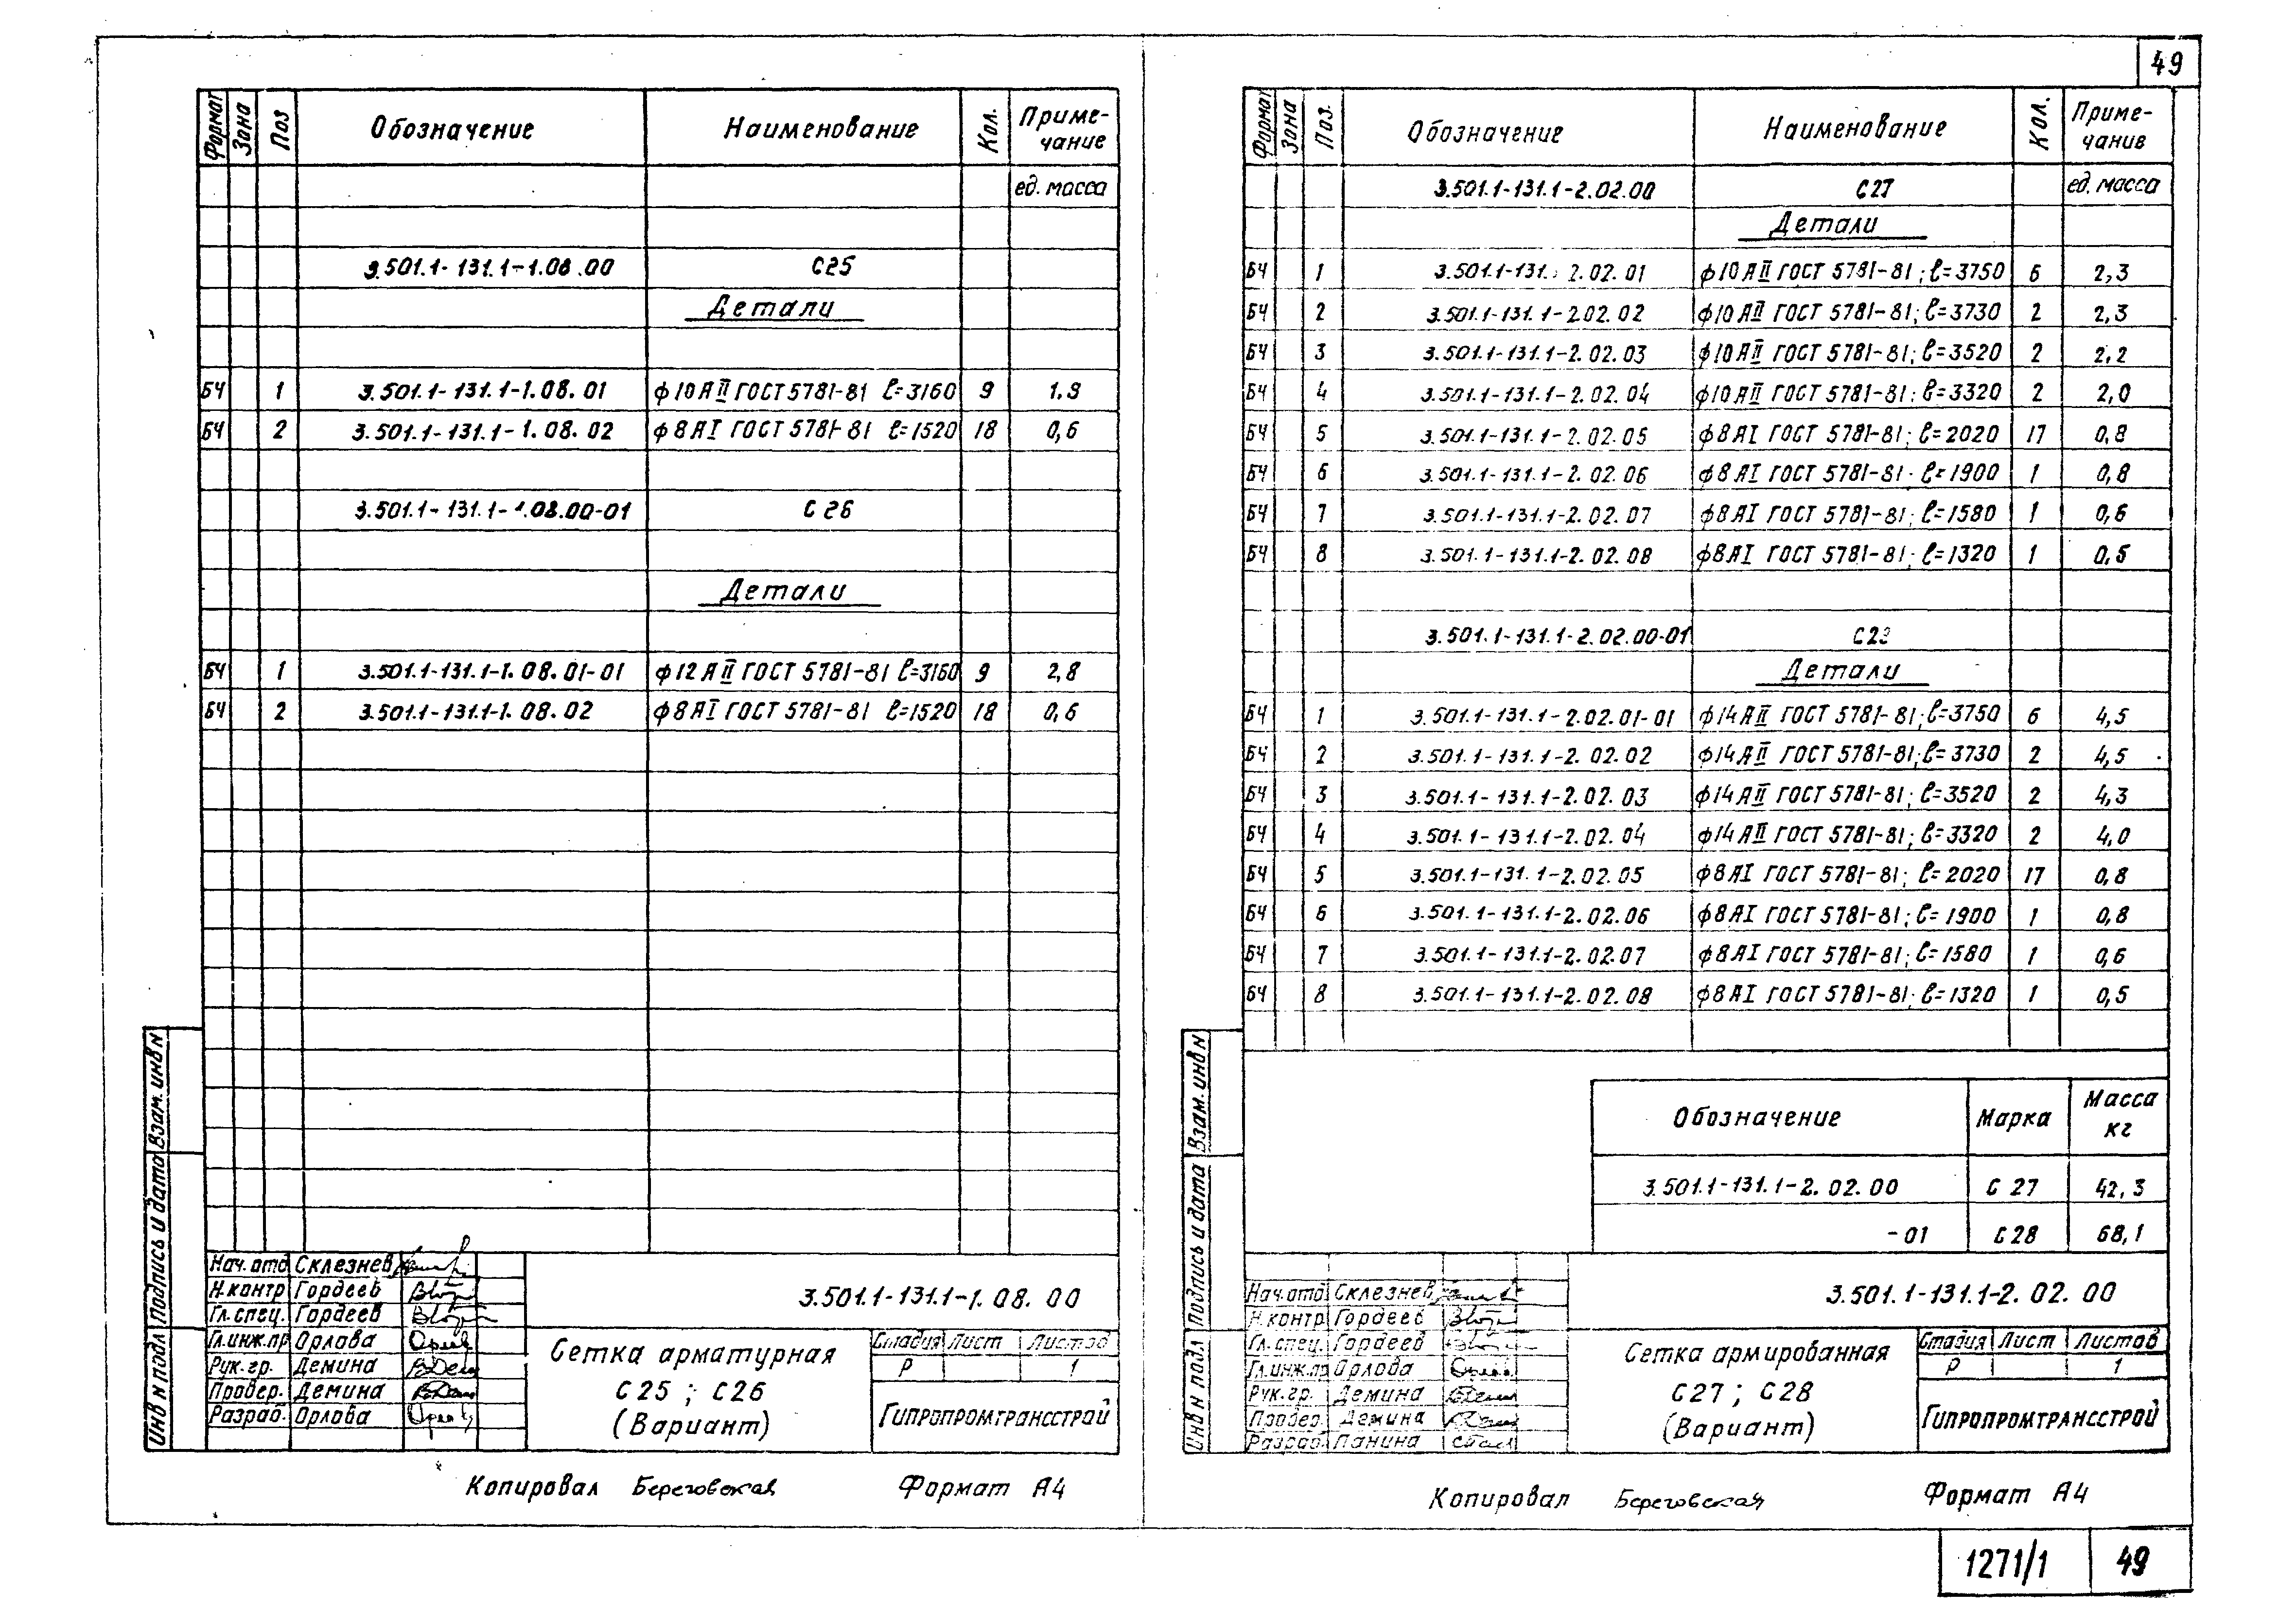 49
Формат Зона Поз Обозначение Наименование Кол. Приме-
чание
ед. масса
3.501.1-131.1-1.08.00 С25
Детали
БЧ 1 3.501.1-131.1-1.08.01 ф10АII ГОСТ 5781-81 ℓ=3160 9 1.9
БЧ 2 3.501.1-131.1-1.08.02 ф8АI ГОСТ 5781-81 ℓ=1520 18 0,6
3.501.1-131.1-1.08.00-01 С26
Детали
БЧ 1 3.501.1-131.1-1.08.01-01 ф12АII ГОСТ 5781-81 ℓ=3160 9 2,8
БЧ 2 3.501.1-131.1-1.08.02 ф8АI ГОСТ 5781-81 ℓ=1520 18 0,6
Инв N подл Подпись и дата Взам. инв N
Нач. отд Склезнев
Н.контр Гордеев
Гл.спец. Гордеев
Гл.инж.пр Орлова
Рук.гр. Демина
Провер. Демина
Разраб. Орлова
3.501.1-131.1-1.08.00
Сетка арматурная
С25 ; С26
(Вариант)
Стадия Лист Листов
Р 1
Гипропромтрансстрой
Копировал Береговская Формат А4
Формат Зона Поз. Обозначение Наименование Кол. Приме-
чание
3.501.1-131.1-2.02.00 С27 ед. масса
Детали
БЧ 1 3.501.1-131. 2.02.01 ф10АII ГОСТ 5781-81; ℓ=3750 6 2,3
БЧ 2 3.501.1-131.1-2.02.02 ф10АII ГОСТ 5781-81; ℓ=3730 2 2,3
БЧ 3 3.501.1-131.1-2.02.03 ф10АII ГОСТ 5781-81; ℓ=3520 2 2,2
БЧ 4 3.501.1-131.1-2.02.04 ф10АII ГОСТ 5781-81; ℓ=3320 2 2,0
БЧ 5 3.501.1-131.1-2.02.05 ф8АI ГОСТ 5781-81; ℓ=2020 17 0,8
БЧ 6 3.501.1-131.1-2.02.06 ф8АI ГОСТ 5781-81; ℓ=1900 1 0,8
БЧ 7 3.501.1-131.1-2.02.07 ф8АI ГОСТ 5781-81; ℓ=1580 1 0,6
БЧ 8 3.501.1-131.1-2.02.08 ф8АI ГОСТ 5781-81; ℓ=1320 1 0,5
3.501.1-131.1-2.02.00-01 С28
Детали
БЧ 1 3.501.1-131.1-2.02.01-01 ф14АII ГОСТ 5781-81; ℓ=3750 6 4,5
БЧ 2 3.501.1-131.1-2.02.02 ф14АII ГОСТ 5781-81; ℓ=3730 2 4,5
БЧ 3 3.501.1-131.1-2.02.03 ф14АII ГОСТ 5781-81; ℓ=3520 2 4,3
БЧ 4 3.501.1-131.1-2.02.04 ф14АII ГОСТ 5781-81; ℓ=3320 2 4,0
БЧ 5 3.501.1-131.1-2.02.05 ф8АI ГОСТ 5781-81; ℓ=2020 17 0,8
БЧ 6 3.501.1-131.1-2.02.06 ф8АI ГОСТ 5781-81; ℓ=1900 1 0,8
БЧ 7 3.501.1-131.1-2.02.07 ф8АI ГОСТ 5781-81; ℓ=1580 1 0,6
БЧ 8 3.501.1-131.1-2.02.08 ф8АI ГОСТ 5781-81; ℓ=1320 1 0,5
Обозначение Марка Масса
кг
3.501.1-131.1-2.02.00 С27 42,3
-01 С28 68,1
Инв N подл Подпись и дата Взам. инв N
Нач.отд Склезнев
Н.контр Гордеев
Гл.спец. Гордеев
Гл.инж.пр Орлова
Рук.гр. Демина
Провер. Демина
Разраб. Панина
3.501.1-131.1-2.02.00
Сетка армированная
С27 ; С28
(Вариант)
Стадия Лист Листов
Р 1
Гипропромтрансстрой
Копировал Береговская Формат А4
1271/1 49